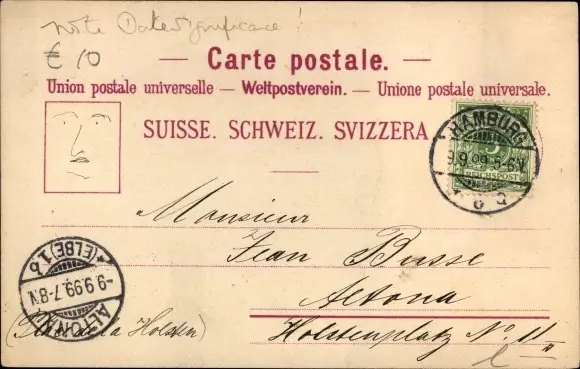 note Date significance!
€ 10
— Carte postale. —
Union postale universelle — Weltpostverein. — Unione postale universale.
SUISSE. SCHWEIZ. SVIZZERA
HAMBURG
9.9.99.5-6N.
REICHSPOST
Monsieur
Jean Busse
Altona
Holstenplatz No. 11
(Holstein)
ALTONA
-9.9.99.7-8N.
*(ELBE)1b